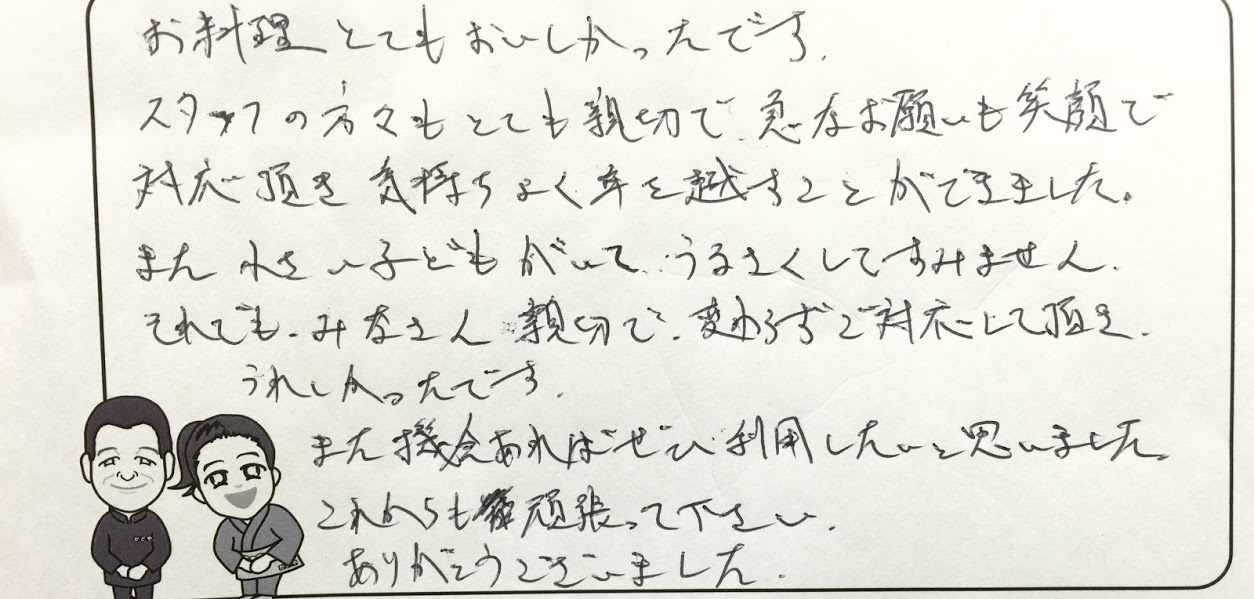 お料理とてもおいしかったです。
スタッフの方々もとても親切で、急なお願いも笑顔で
対応頂き気持ちよく年を越すことができました。
また小さい子どもがいて、うるさくしてすみません。
それでも、みなさん親切で、変わらずご対応して頂き、
うれしかったです。
また機会あればぜひ利用したいと思いました。
これからも頑張って下さい。
ありがとうございました。